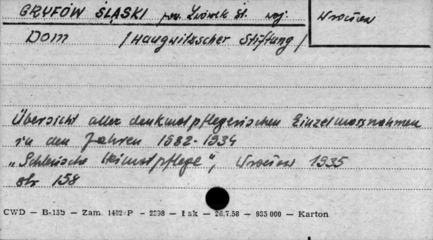 GRYFÓW ŚLĄSKI pow. Lwówek Śl. woj. Wrocław
Dom /Haugwitzscher Stiftung/
Übersicht aller denkmalpflegerischen Einzelmassnahmen
in den Jahren 1882-1934
"Schlesische Heimatpflege", Wrocław 1935
str 158
CWD — B-135 — Zam. 1402/P — 2298 — Łsk — 26.7.58 — 935 000 — Karton